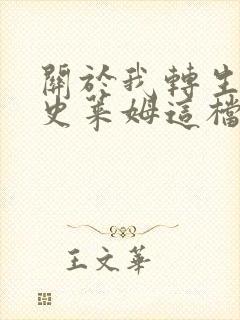 關於我轉生
史萊姆這檔
王文華